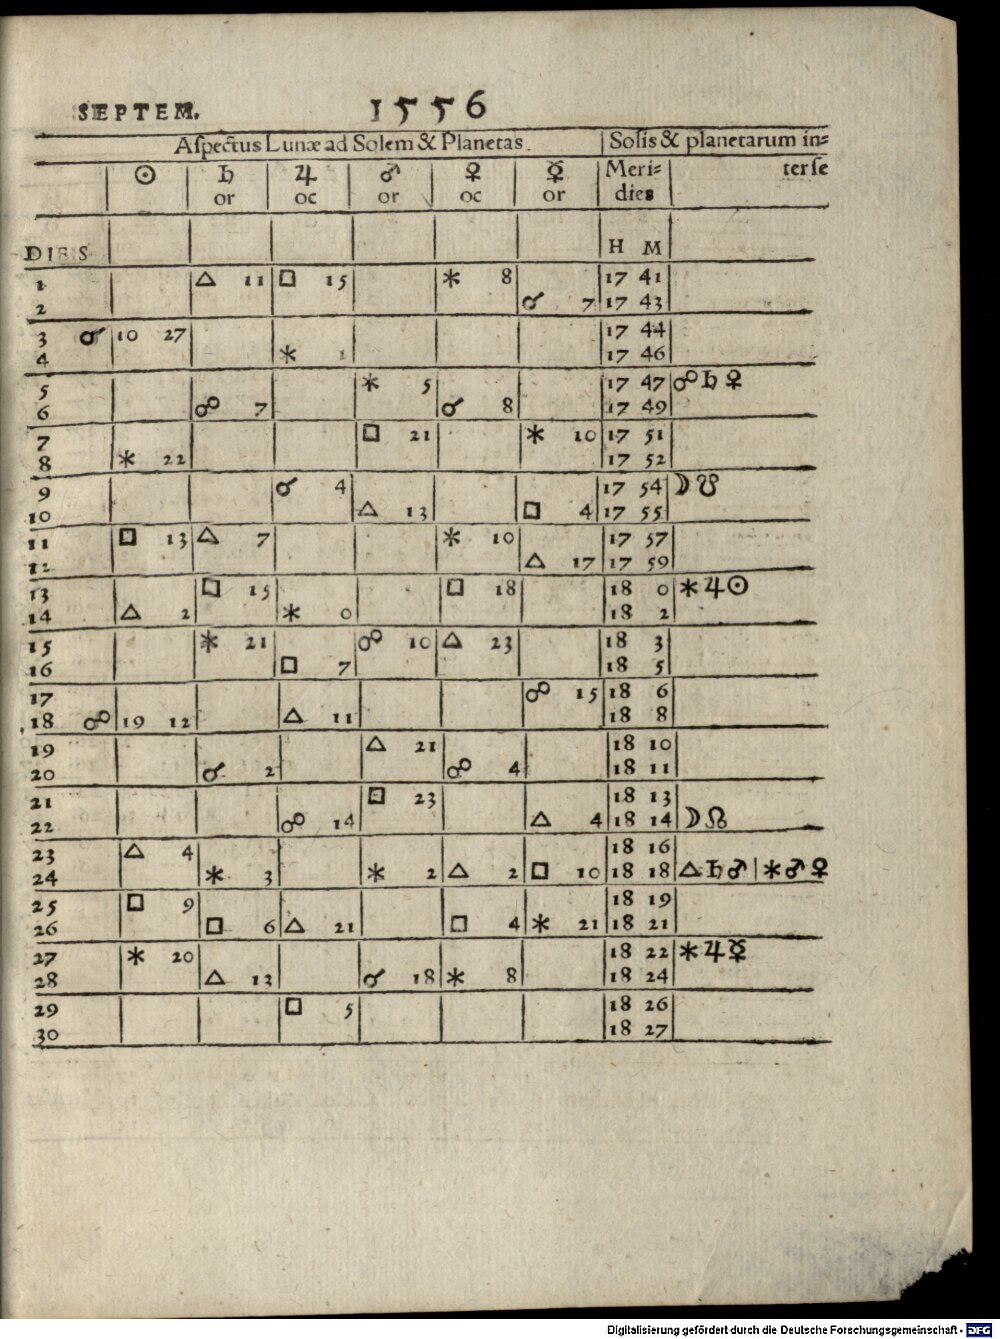 SEPTEM. 1556
Aspectus Lunæ ad Solem & Planetas. Solis & planetarum in=
☉ ♄ ♃ ♂ ♀ ☿ Meri= terse
or oc or oc or dies
DIES H M
1 △ 11 □ 15 ⚹ 8 17 41
2 ☌ 7 17 43
3 ☌ 10 27 17 44
4 ⚹ 1 17 46
5 ⚹ 5 17 47 ☍ ♄ ♀
6 ☍ 7 ☌ 8 17 49
7 □ 21 ⚹ 10 17 51
8 ⚹ 22 17 52
9 ☌ 4 17 54 ☽ ☋
10 △ 13 □ 4 17 55
11 □ 13 △ 7 ⚹ 10 17 57
12 △ 17 17 59
13 □ 15 □ 18 18 0 ⚹ ♃ ☉
14 △ 2 ⚹ 0 18 2
15 ⚹ 21 ☍ 10 △ 23 18 3
16 □ 7 18 5
17 ☍ 15 18 6
18 ☍ 19 12 △ 11 18 8
19 △ 21 18 10
20 ☌ 2 ☍ 4 18 11
21 □ 23 18 13
22 ☍ 14 △ 4 18 14 ☽ ☊
23 △ 4 18 16
24 ⚹ 3 ⚹ 2 △ 2 □ 10 18 18 △ ♄ ♂ | ⚹ ♂ ♀
25 □ 9 18 19
26 □ 6 △ 21 □ 4 ⚹ 21 18 21
27 ⚹ 20 18 22 ⚹ ♃ ☿
28 △ 13 ☌ 18 ⚹ 8 18 24
29 □ 5 18 26
30 18 27
Digitalisierung gefördert durch die Deutsche Forschungsgemeinschaft - DFG